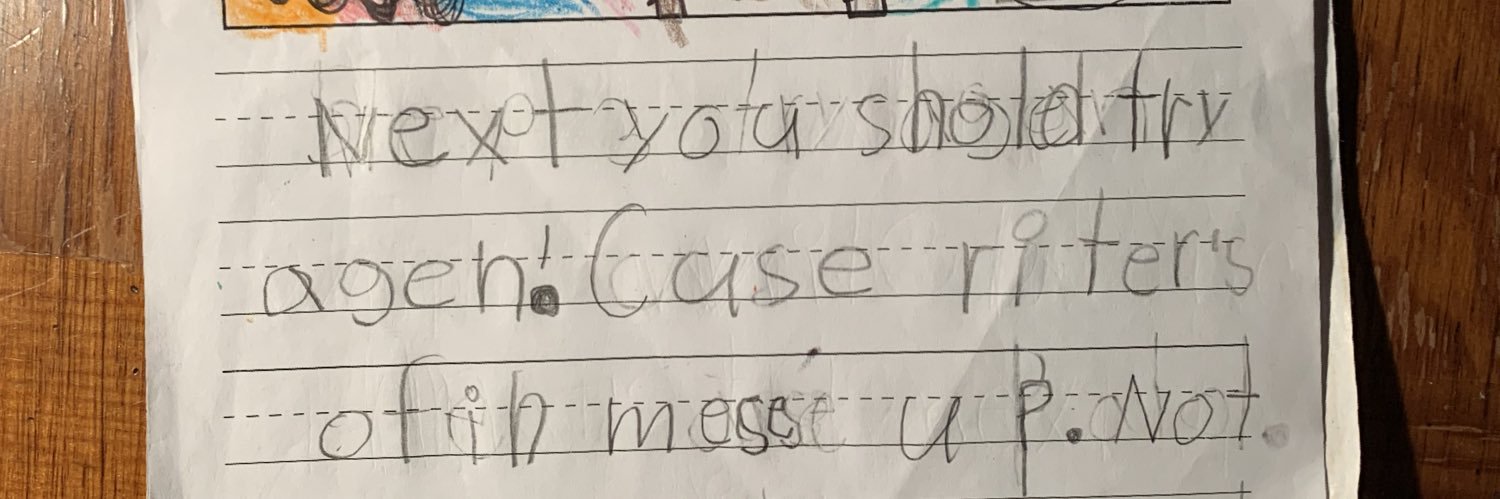 Next you sholed try
agen! Cause riters
ofin mess up. Not.